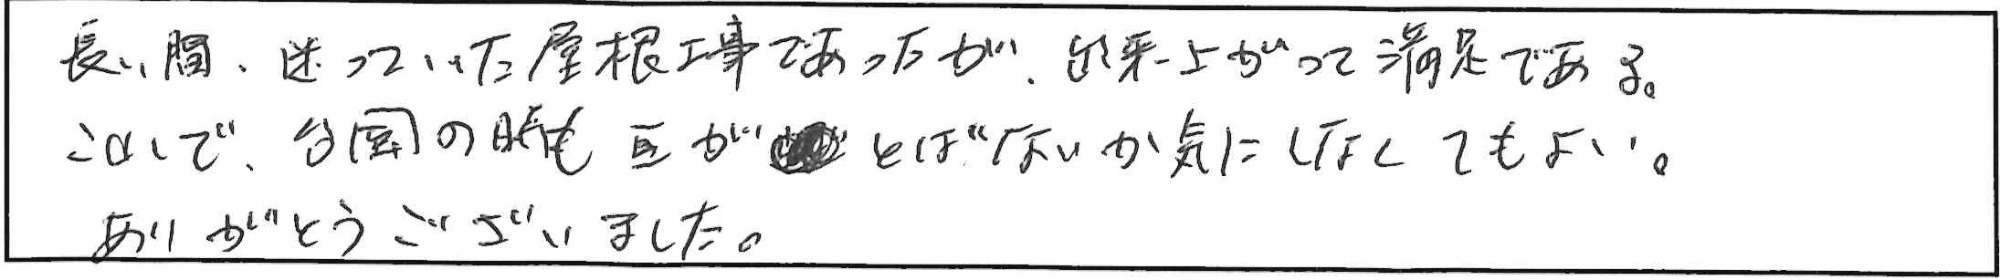 長い間、迷っていた屋根工事であったが、出来上がって満足である。
これで、台風の時も瓦がとばないか気にしなくてもよい。
ありがとうございました。